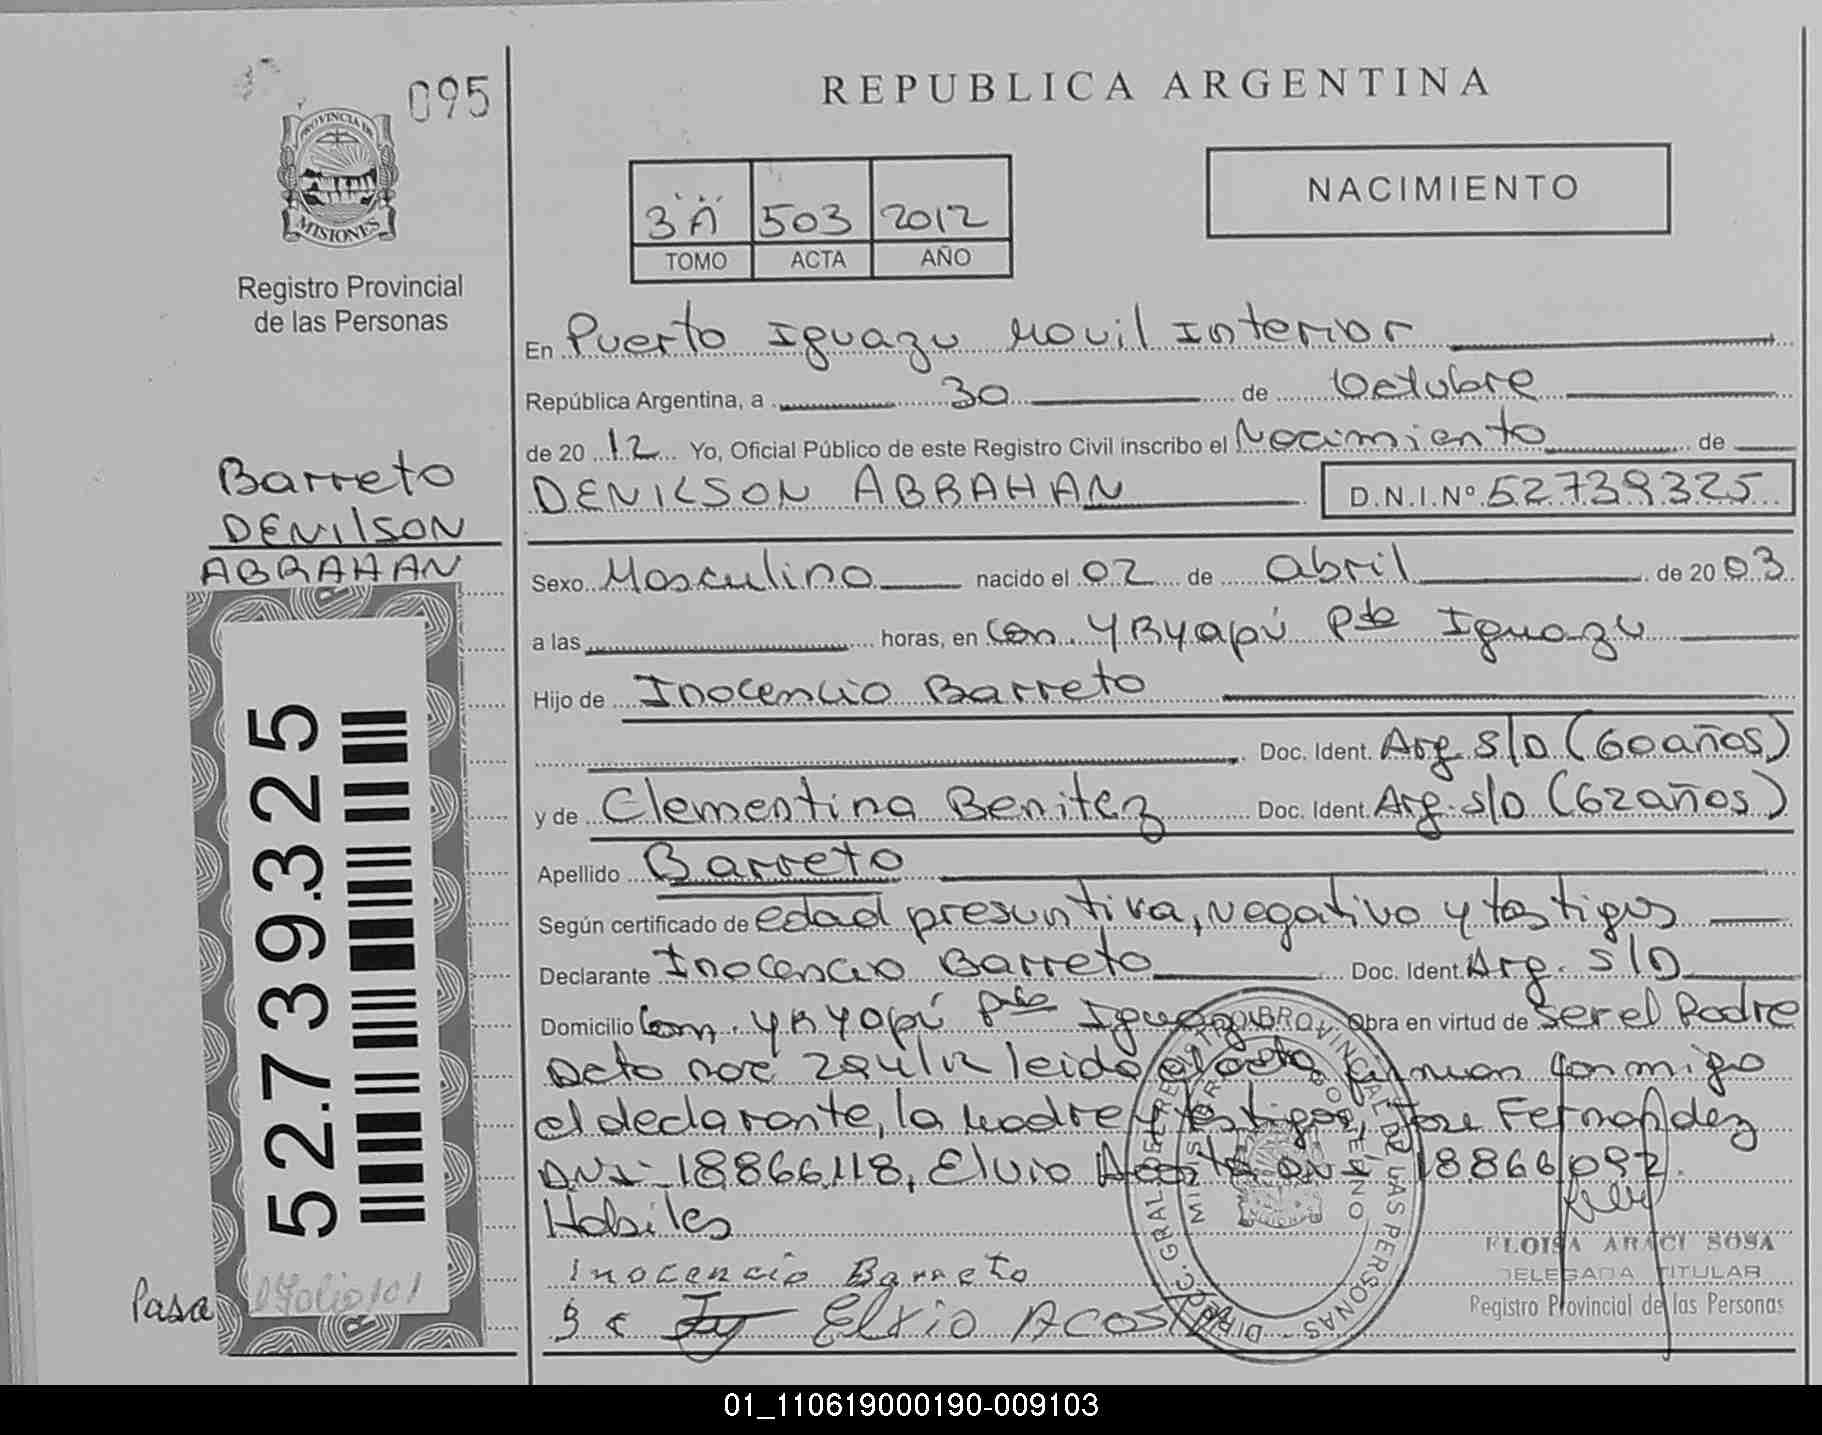 095
PROVINCIA DE
MISIONES
Registro Provincial
de las Personas
REPUBLICA ARGENTINA
NACIMIENTO
3 "A" 503 2012
TOMO ACTA AÑO
En Puerto Iguazu Movil Interior
República Argentina, a 30 de Octubre
de 2012 Yo, Oficial Público de este Registro Civil inscribo el Nacimiento de
DENILSON ABRAHAN D.N.I.Nº 52739325
Barreto
DENILSON
ABRAHAN
Sexo Masculino nacido el 02 de abril de 2003
a las horas, en Com. YRYapú Pto Iguazu
Hijo de Inocencio Barreto
Doc. Ident. Arg. S/D (60años)
y de Clementina Benitez Doc. Ident. Arg. S/D (62años)
Apellido Barreto
Según certificado de edad presuntiva, negativo y testigos
Declarante Inocencio Barreto Doc. Ident. Arg. S/D
Domicilio Com. YRYapú Pto Iguazu Obra en virtud de ser el Padre
leida el acta firman conmigo
el declarante, la madre y testigos, Jose Fernandez
DNI- 18866118, Elvio Acosta DNI 18866092.
Habiles
Inocencio Barreto
Elvio Acosta
52.739.325
Pasa al Folio 101
DIREC. GRAL DE REGISTRO PROVINCIAL DE LAS PERSONAS
ELOISA ARACI SOSA
DELEGADA TITULAR
Registro Provincial de las Personas
01_110619000190-009103